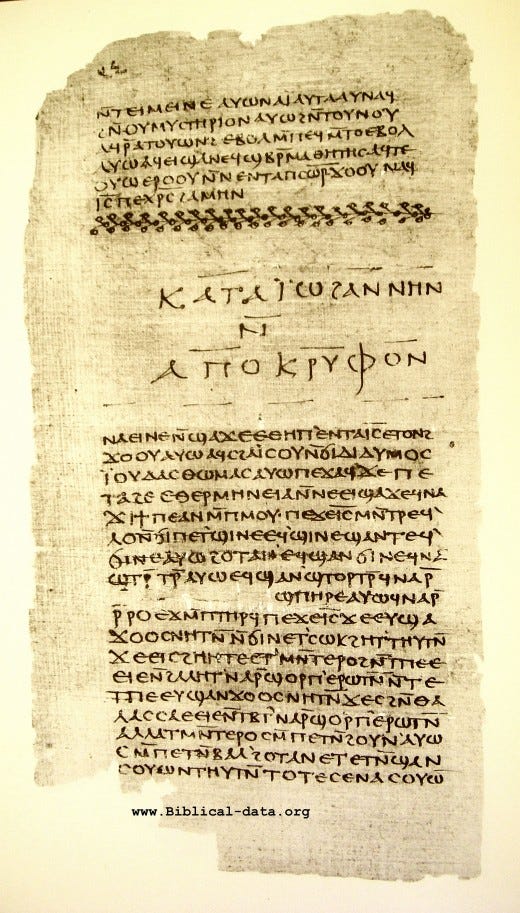 ⲛ̄ⲧⲉⲓⲙⲉⲓⲛⲉ ⲁⲩⲱ ⲛⲁⲓ̈ ⲁⲩⲧⲁⲁⲩ ⲛⲁϥ
ϩⲛ̄ⲛⲟⲩⲙⲩⲥⲧⲏⲣⲓⲟⲛ ⲁⲩⲱ ϩⲛ̄ⲧⲟⲩⲛⲟⲩ
ⲁϥⲣ̄ⲁⲧⲟⲩⲱⲛϩ ⲉⲃⲟⲗ ⲙ̄ⲡⲉϥⲙ̄ⲧⲟ ⲉⲃⲟⲗ
ⲁⲩⲱ ⲁϥⲉⲓ ϣⲁ ⲛⲉϥϣⲃⲣ̄ⲙⲁⲑⲏⲧⲏⲥ ⲁϥⲧⲉ
ⲟⲩⲱ ⲉⲣⲟⲟⲩ ⲛ̄ⲛⲉⲛⲧⲁⲡⲥⲱ̅ⲣ̅ ϫⲟⲟⲩ ⲛⲁϥ
ⲓ̅ⲥ̅ ⲡⲉⲭ̅ⲣ̅ⲥ̅ ϩⲁⲙⲏⲛ
ⲕⲁⲧⲁ ⲓ̈ⲱϩⲁⲛⲛⲏⲛ
ⲛ̄
ⲁⲡⲟⲕⲣⲩⲫⲟⲛ
ⲛⲁⲉⲓ ⲛⲉ ⲛ̄ϣⲁϫⲉ ⲉⲑⲏⲡ ⲉⲛⲧⲁⲓ̅ⲥ̅ ⲉⲧⲟⲛϩ
ϫⲟⲟⲩ ⲁⲩⲱ ⲁϥⲥϩⲁⲓ̈ⲥⲟⲩ ⲛ̄ϭⲓ ⲇⲓⲇⲩⲙⲟⲥ
ⲓ̈ⲟⲩⲇⲁⲥ ⲑⲱⲙⲁⲥ ⲁⲩⲱ ⲡⲉϫⲁϥ ϫⲉ ⲡⲉ
ⲧⲁϩⲉ ⲉⲑⲉⲣⲙⲏⲛⲉⲓⲁ ⲛ̄ⲛⲉⲉⲓϣⲁϫⲉ ϥⲛⲁ
ϫⲓ ϯⲡⲉ ⲁⲛ ⲙ̄ⲡⲙⲟⲩ ⲡⲉϫⲉ ⲓ̅ⲥ̅ ⲙⲛ̄ⲧⲣⲉϥ
ⲗⲟ ⲛ̄ϭⲓ ⲡⲉⲧϣⲓⲛⲉ ⲉϥϣⲓⲛⲉ ϣⲁⲛⲧⲉϥ
ϭⲓⲛⲉ ⲁⲩⲱ ϩⲟⲧⲁⲛ ⲉϥϣⲁⲛϭⲓⲛⲉ ϥⲛⲁ
ϣⲧⲣ̄ⲧⲣ̄ ⲁⲩⲱ ⲉϥϣⲁⲛϣⲧⲟⲣⲧⲣ̄ ϥⲛⲁⲣ̄
ϣⲡⲏⲣⲉ ⲁⲩⲱ ϥⲛⲁⲣ̄
ⲣ̄ⲣⲟ ⲉϫⲙ̄ ⲡⲧⲏⲣϥ ⲡⲉϫⲉ ⲓ̅ⲥ̅ ϫⲉ ⲉⲩϣⲁ
ϫⲟⲟⲥ ⲛⲏⲧⲛ̄ ⲛ̄ϭⲓ ⲛⲉⲧⲥⲱⲕ ϩⲏⲧ ⲧⲏⲩⲧⲛ̄
ϫⲉ ⲉⲓⲥϩⲏⲏⲧⲉ ⲉⲧⲙⲛ̄ⲧⲉⲣⲟ ϩⲛ̄ ⲧⲡⲉ ⲉ
ⲉⲓⲉ ⲛ̄ϩⲁⲗⲏⲧ ⲛⲁⲣ̄ϣⲟⲣⲡ ⲉⲣⲱⲧⲛ̄ ⲛ̄ⲧⲉ
ⲧⲡⲉ ⲉⲩϣⲁⲛϫⲟⲟⲥ ⲛⲏⲧⲛ̄ ϫⲉ ⲥϩⲛ̄ ⲑⲁ
ⲗⲁⲥⲥⲁ ⲉⲉⲓⲉ ⲛ̄ⲧⲃⲧ ⲛⲁⲣ̄ϣⲟⲣⲡ ⲉⲣⲱⲧⲛ̄
ⲁⲗⲗⲁ ⲧⲙⲛ̄ⲧⲉⲣⲟ ⲥⲙ̄ⲡⲉⲧⲛ̄ϩⲟⲩⲛ ⲁⲩⲱ
ⲥⲙ̄ⲡⲉⲧⲛ̄ⲃⲁⲗ ϩⲟⲧⲁⲛ ⲉⲧⲉⲧⲛ̄ϣⲁⲛ
ⲥⲟⲩⲱⲛ ⲧⲏⲩⲧⲛ̄ ⲧⲟⲧⲉ ⲥⲉⲛⲁⲥⲟⲩⲱ
www.Biblical-data.org